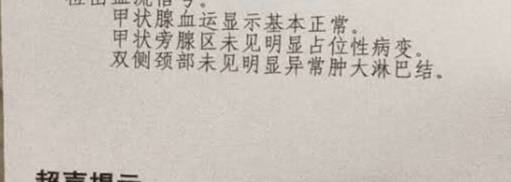 检出血流信号。
甲状腺血运显示基本正常。
甲状旁腺区未见明显占位性病变。
双侧颈部未见明显异常肿大淋巴结。
超声提示